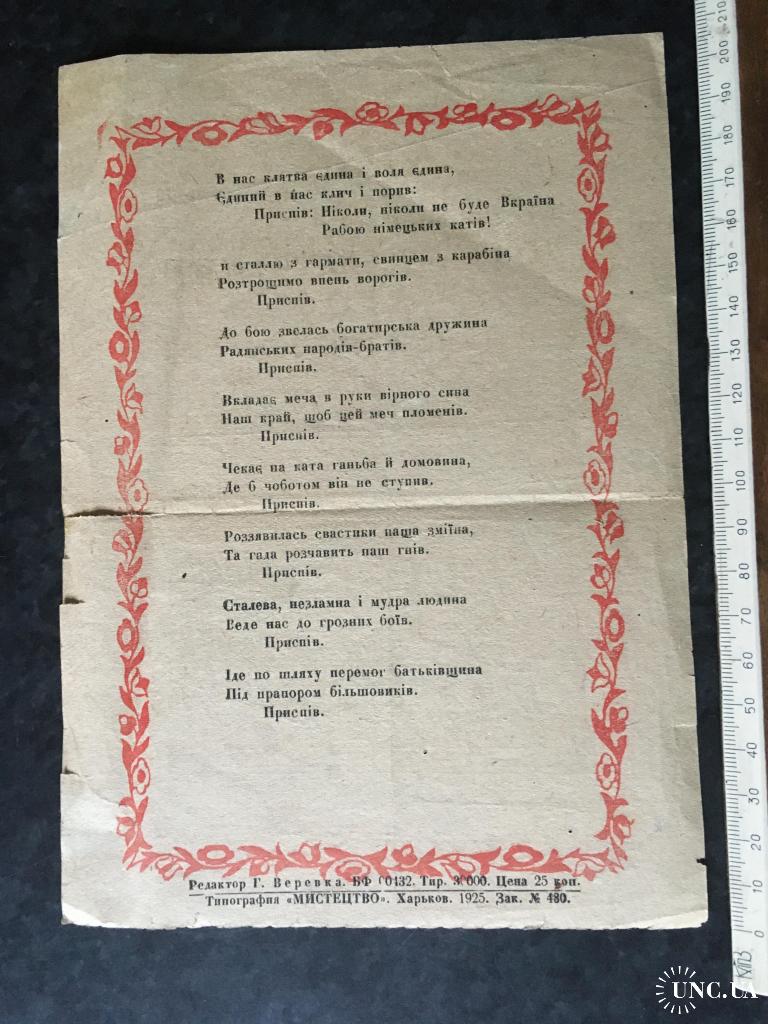 В нас клятва єдина і воля єдина,
Єдиний в нас клич і порив:
Приспів: Ніколи, ніколи не буде Вкраїна
Рабою німецьких катів!
и сталлю з гармати, свинцем з карабіна
Розтрощимо впень ворогів.
Приспів.
До бою звелась богатирська дружина
Радянських народів-братів.
Приспів.
Вкладає меча в руки вірного сина
Наш край, щоб цей меч пломенів.
Приспів.
Чекає на ката ганьба й домовина,
Де б чоботом він не ступив.
Приспів.
Роззявилась свастики паща зміїна,
Та гада розчавить наш гнів.
Приспів.
Сталева, незламна і мудра людина
Веде нас до грозних боїв.
Приспів.
Іде по шляху перемог батьківщина
Під прапором більшовиків.
Приспів.
Редактор Г. Веревка. БФ 00432. Тир. 30000. Цена 25 коп.
Типография «МИСТЕЦТВО». Харьков. 1925. Зак. № 480.
0 10 20 30 40 50 60 70 80 90 100 110 120 130 140 150 160 170 180 190 200 210
UNC.UA